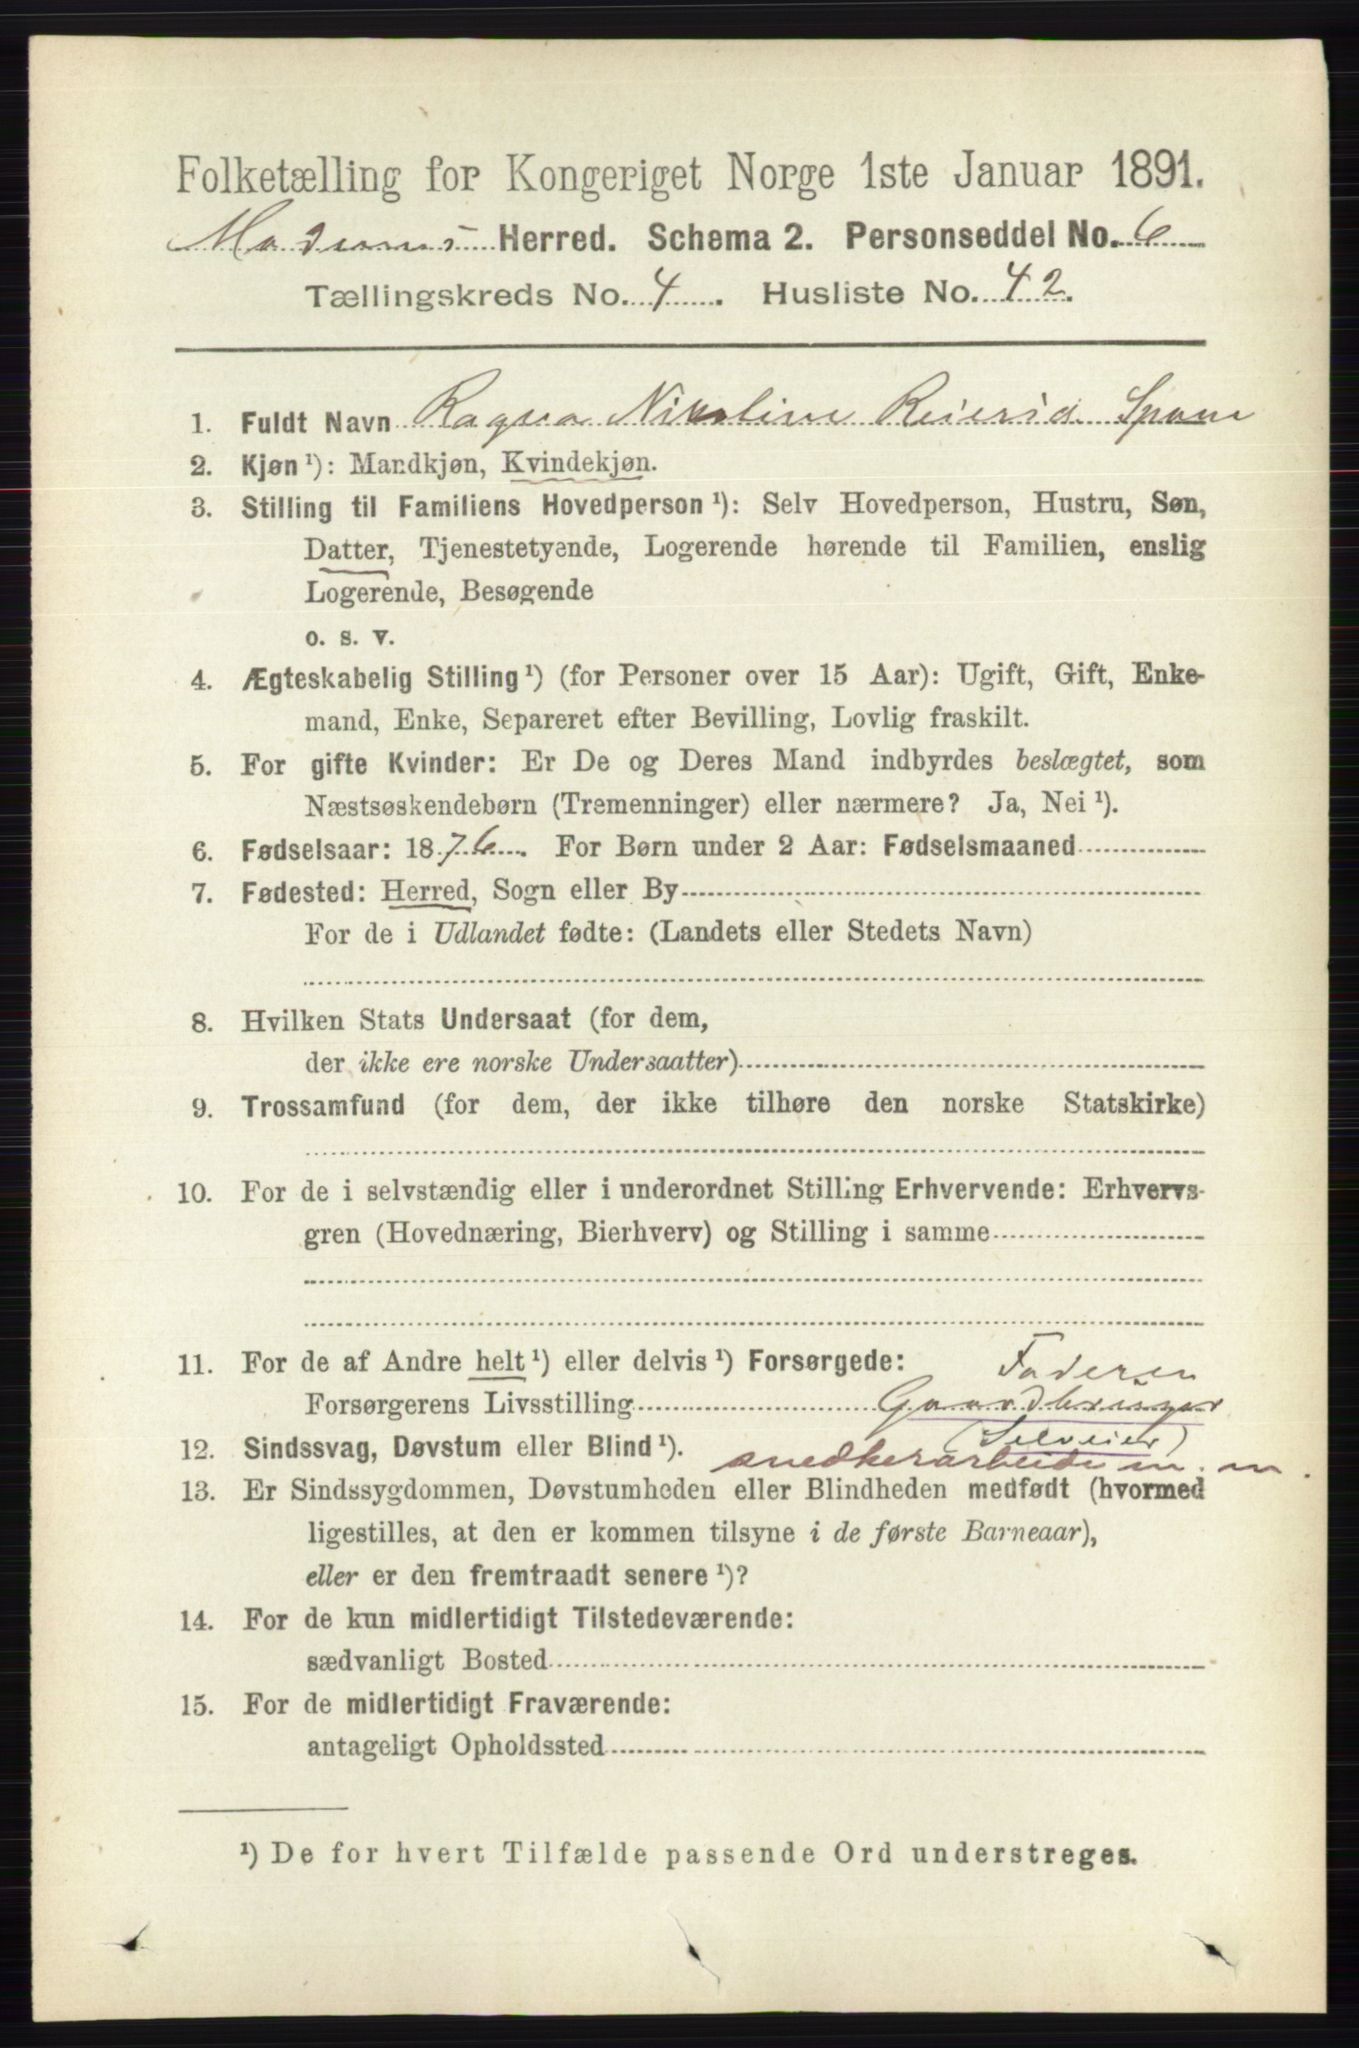 Folketælling for Kongeriget Norge 1ste Januar 1891.
Modums Herred. Schema 2. Personseddel No. 6
Tællingskreds No. 4. Husliste No. 42.
1. Fuldt Navn Ragna Nikoline Reiersd. Spone
2. Kjøn ¹): Mandkjøn, Kvindekjøn.
3. Stilling til Familiens Hovedperson ¹): Selv Hovedperson, Hustru, Søn,
Datter, Tjenestetyende, Logerende hørende til Familien, enslig
Logerende, Besøgende
o. s. v.
4. Ægteskabelig Stilling ¹) (for Personer over 15 Aar): Ugift, Gift, Enke-
mand, Enke, Separeret efter Bevilling, Lovlig fraskilt.
5. For gifte Kvinder: Er De og Deres Mand indbyrdes beslægtet, som
Næstsøskendebørn (Tremenninger) eller nærmere? Ja, Nei ¹).
6. Fødselsaar: 1876. For Børn under 2 Aar: Fødselsmaaned
7. Fødested: Herred, Sogn eller By
For de i Udlandet fødte: (Landets eller Stedets Navn)
8. Hvilken Stats Undersaat (for dem,
der ikke ere norske Undersaatter)
9. Trossamfund (for dem, der ikke tilhøre den norske Statskirke)
10. For de i selvstændig eller i underordnet Stilling Erhvervende: Erhvervs-
gren (Hovednæring, Bierhverv) og Stilling i samme
11. For de af Andre helt ¹) eller delvis ¹) Forsørgede: Faderen
Forsørgerens Livsstilling Gaardbruger
(Selveier)
12. Sindssvag, Døvstum eller Blind ¹). snedkerarbeide m. m.
13. Er Sindssygdommen, Døvstumheden eller Blindheden medfødt (hvormed
ligestilles, at den er kommen tilsyne i de første Barneaar),
eller er den fremtraadt senere ¹)?
14. For de kun midlertidigt Tilstedeværende:
sædvanligt Bosted
15. For de midlertidigt Fraværende:
antageligt Opholdssted
¹) De for hvert Tilfælde passende Ord understreges.